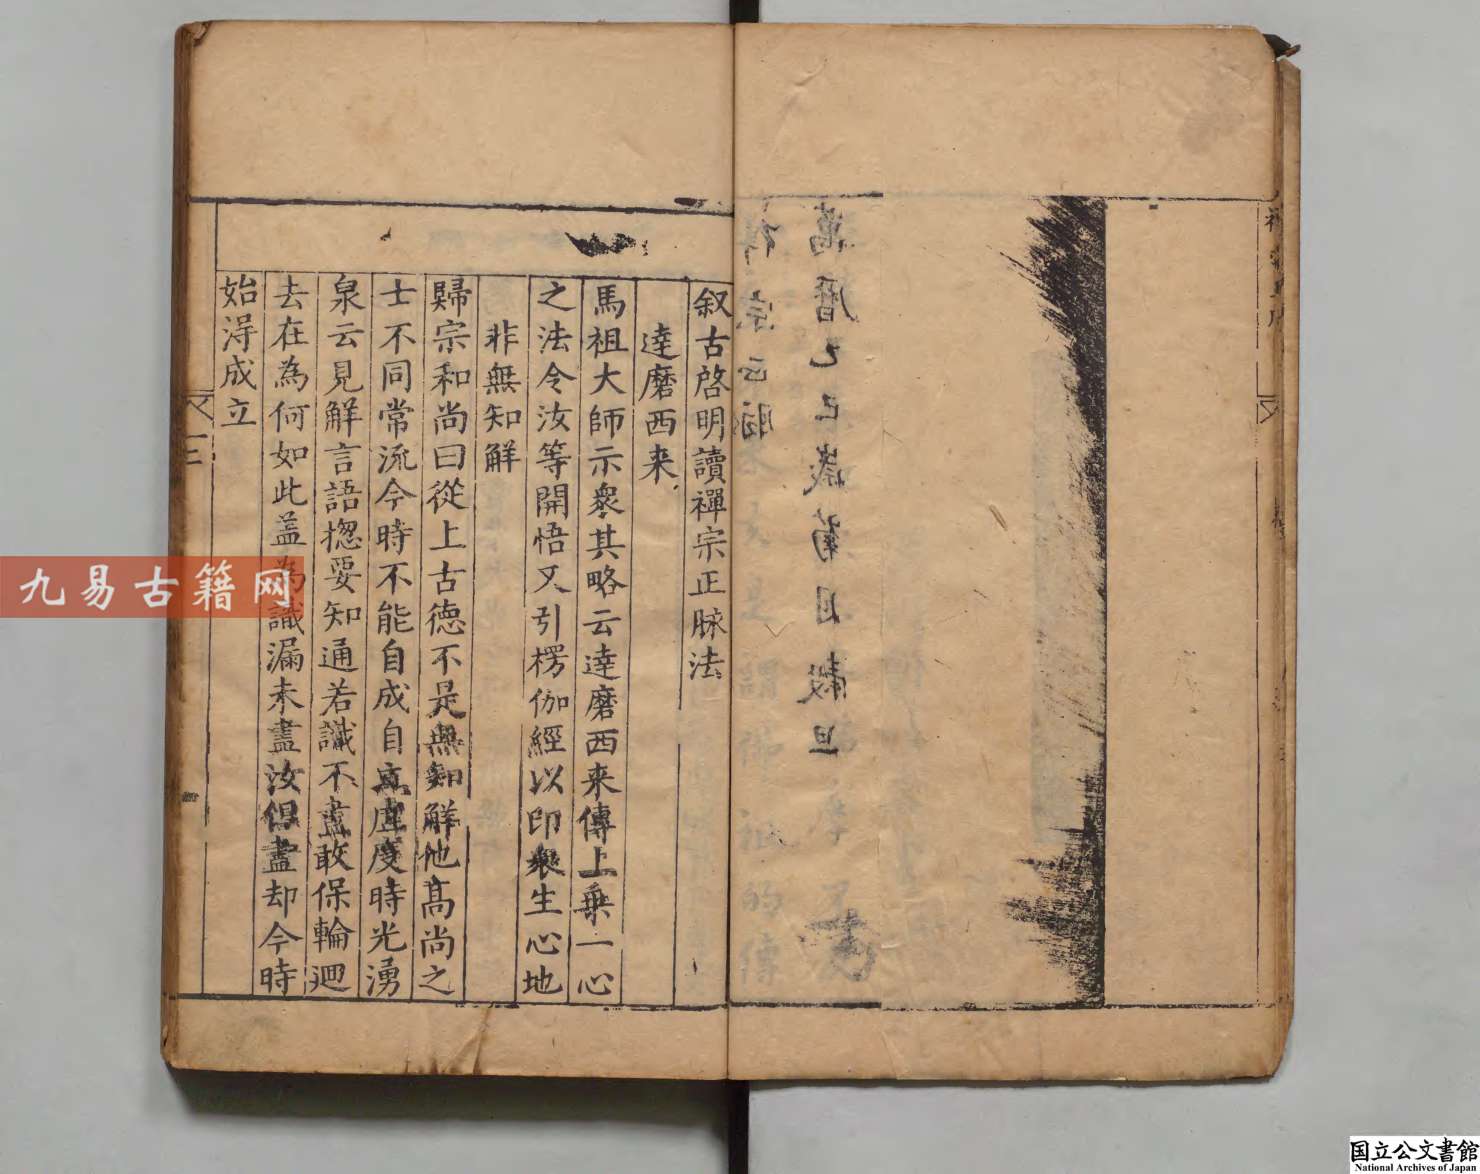 萬曆己巳歲菊月穀旦
叙古啓明讀禪宗正脉法
達磨西来
馬祖大師示衆其略云達磨西来傳上乗一心
之法令汝等開悟又引楞伽經以印衆生心地
非無知解
歸宗和尚曰從上古徳不是無知解他髙尚之
士不同常流今時不能自成自立虚度時光湧
泉云見解言語揔要知通若識不盡敢保輪迴
去在為何如此盖為識漏未盡汝但盡却今時
始淂成立
九易古籍网
国立公文書館
National Archives of Japan